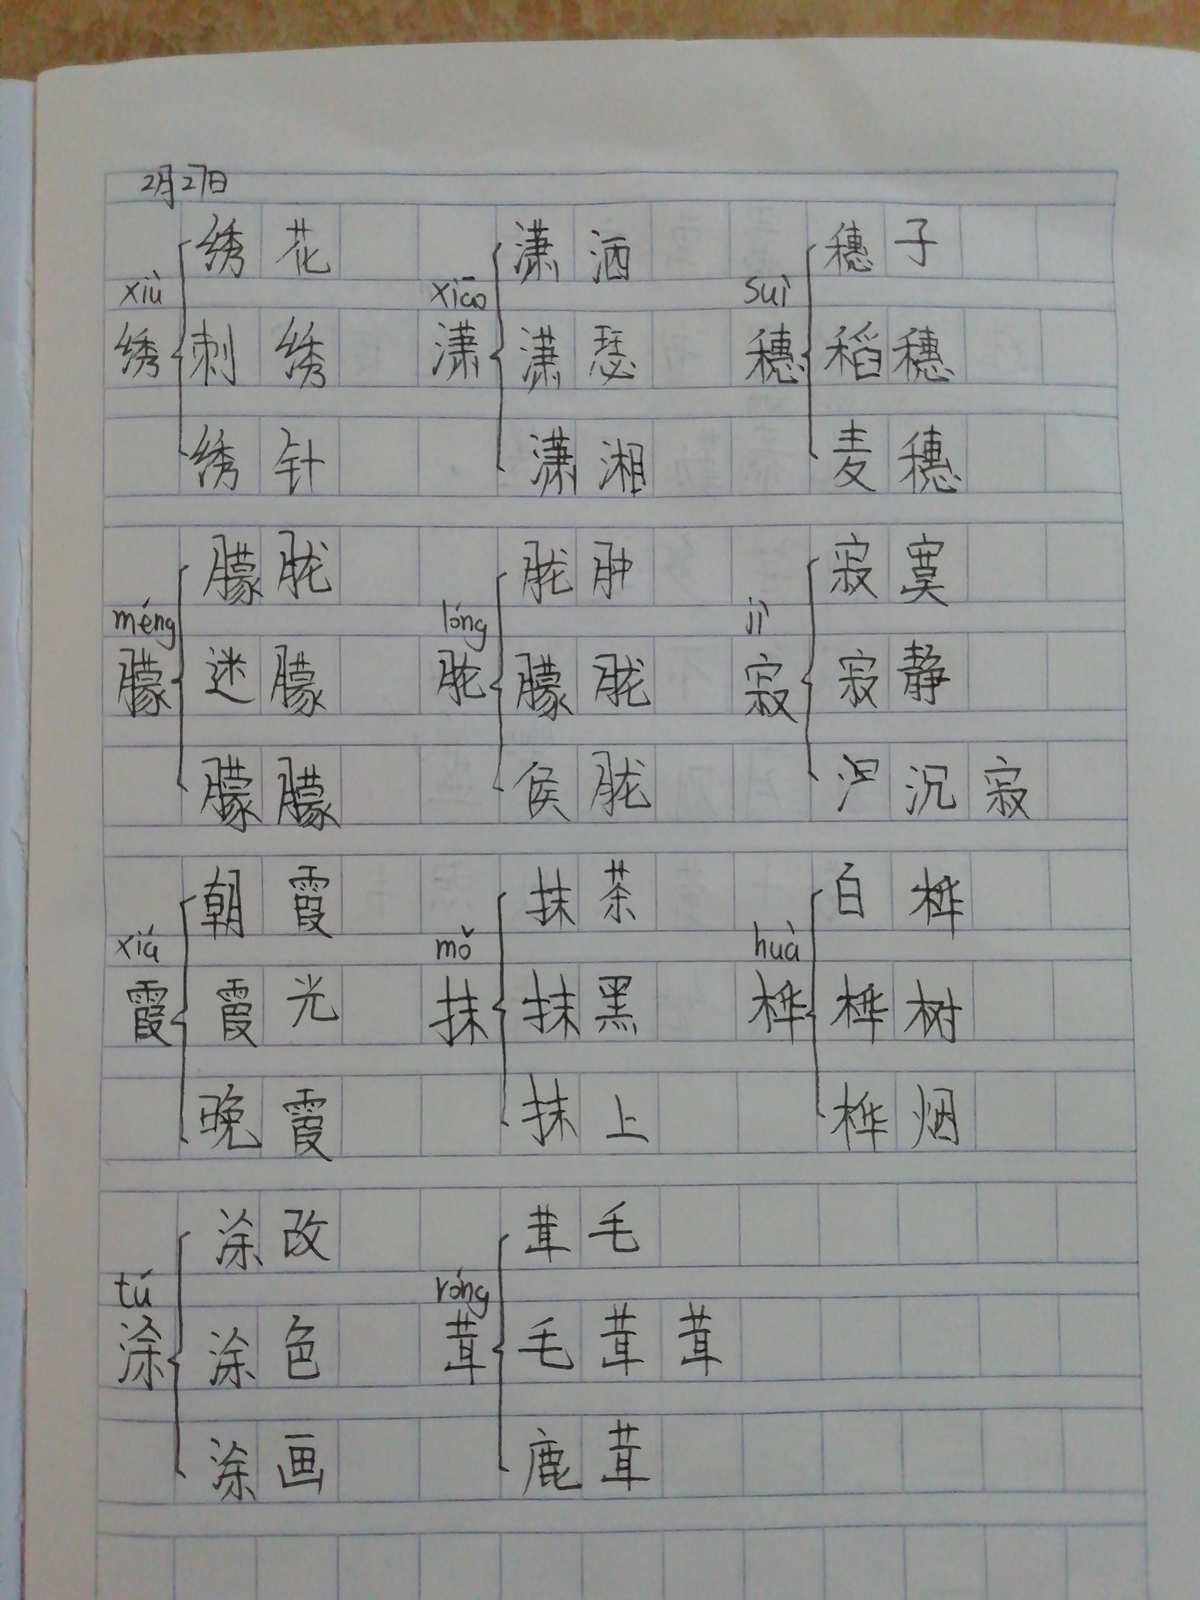 2月27日
绣花 潇洒 穗子
xiù xiāo suì
绣 刺绣 潇 潇瑟 穗 稻穗
绣针 潇湘 麦穗
朦胧 胧肿 寂寞
méng lóng jì
朦 迷朦 胧 朦胧 寂 寂静
朦朦 侯胧 沉寂
朝霞 抹茶 白桦
xiá mǒ huà
霞 霞光 抹 抹黑 桦 桦树
晚霞 抹上 桦烟
涂改 茸毛
tú róng
涂 涂色 茸 毛茸茸
涂画 鹿茸